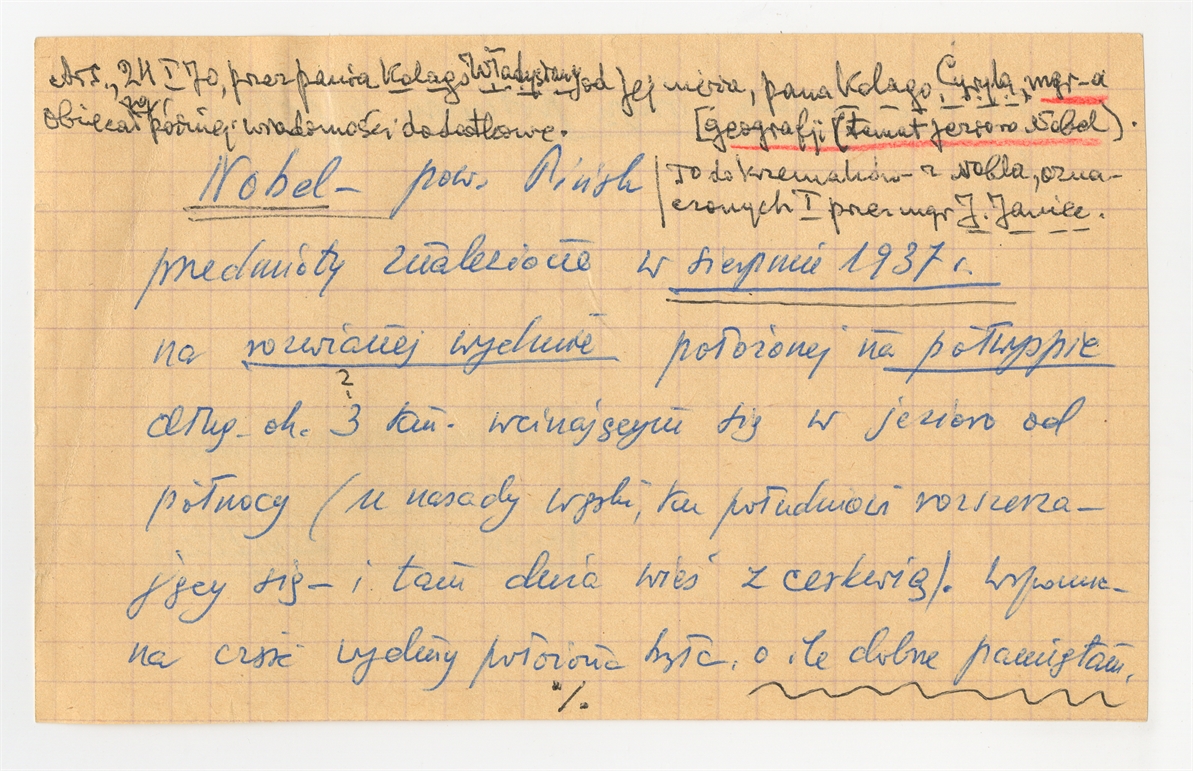 24 I 70, przez panią Kolago Władysławę od Jej męża, pana Kolago, Cyryla, mgr-a
obiecał zaś później wiadomości dodatkowe. [geografji (temat jezioro Nobel).
Nobel – pow. Pińsk
To do krzemieni z Nobla, ozna-
czonych I przez mgr J. Janiec.
przedmioty znalezione w sierpniu 1937 r.
na rozwianej wydmie położonej na półwyspie
dług. ok. 3 km. wcinającym się w jezioro od
?
północy (u nasady wąski, ku południowi rozszerza-
jący się – i tam duża wieś z cerkwią). Wspomnia-
na część wydmy położona była, o ile dobrze pamiętam,
%.